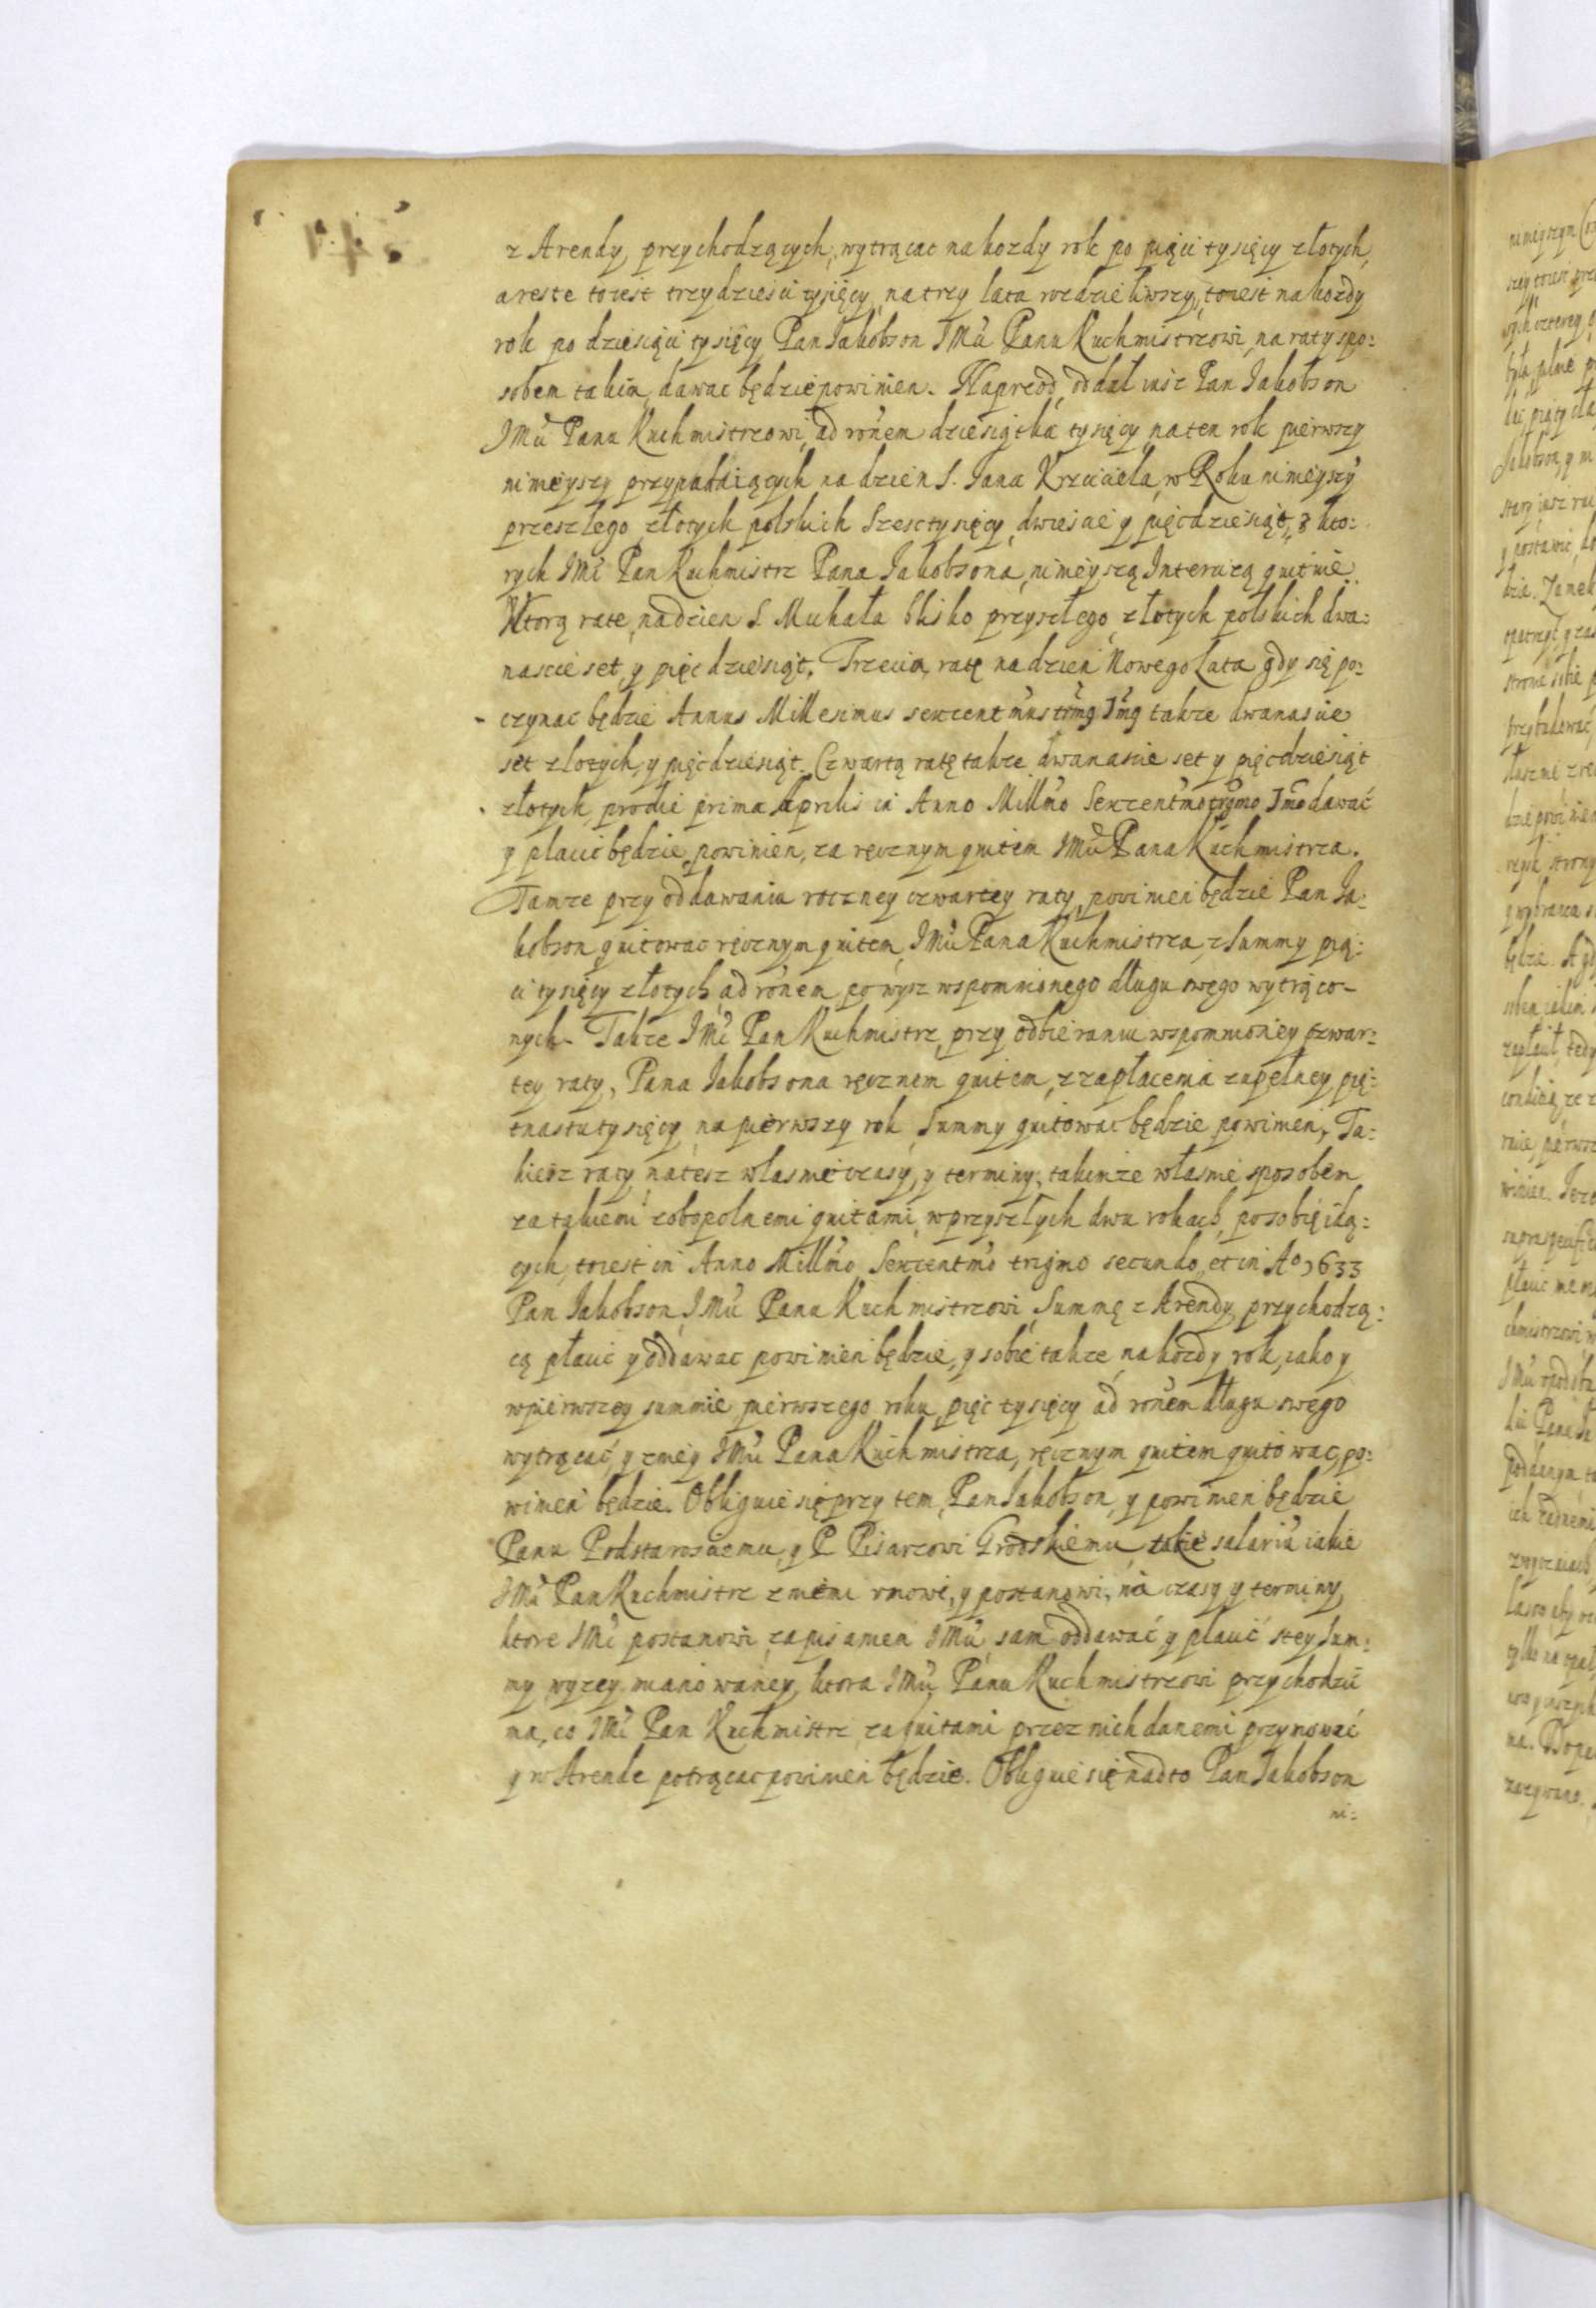 z Arendy przychodzących, wytrącac na kozdy rok po pięci tysięcy złotych,
a reste toiest trzydziesci tysięcy, na trzy lata rozdzieliwszy, toiest na kozdy
rok po dziesiąci tysięcy Pan Jakobson JMu Panu Kuchmistrzowi, na raty spo:
sobem takim, dawac będzie powinien. Naprzod, oddał iusz Pan Jakobson
JMu Panu Kuchmistrzowi, ad ronem dziesiątka tysięcy, na ten rok pierwszy
ninieyszy przypadaiących na dzien S. Jana Krzciciela, w Roku ninieyszy
przeszlego, złotych polskich Szesc tysięcy, dwiescie y pięcdziesiąt, z kto:
rych JMc Pan Kuchmistrz Pana Jakobsona, ninieyszą Intercizą quituie.
Wtorą rate, na dzien S. Michała blisko przyszłego, złotych polskich dwa:
nascie set, y pięcdziesiąt. Trzecia, ratę na dzien Nowego Lata gdy się po:
czynac będzie Annus Millesimus sexcentmus trmg Jmg takze dwanascie
set zlotych, y pięcdziesiąt. Czwartą ratę takze dwanascie set y pięcdziesiąt
złotych, prodie prima Aprilis in Anno Millmo Sexcentmo trigmo Jmo dawać
y placic będzie, powinien, za ręcznym quitem JMu Pana Kuchmistrza.
Tamze przy oddawaniu roczney czwartey raty, powinien będzie Pan Ja:
kobson quitowac ręcznym quitem, JMu Pana Kuchmistrza, z Summy pię:
ci tysięcy złotych, ad ronem powysz wspomnionego długu swego wytrąco-
nych. Takze JMc Pan Kuchmistrz, przy odbieraniu wspomnioney czwar:
tey raty, Pana Jakobsona ręcznem quitem, z zapłacenia zupełney pię:
tnastu tysięcy, na pierwszy rok, Summy quitowac będzie powinien. Ta:
kiesz raty, na tesz wlasnie czasy, y terminy, takimze własnie sposobem,
za takiemi zobopolnemi quitami, w przyszłych dwu rokach, po sobię idą:
cych, toiest in Anno Millmo Sexcentmo trigmo secundo, et in Ao 1633
Pan Jakobson, JMu Panu Kuchmistrzowi, Summę z Arendy przychodzą:
cą płacic y oddawac powinien będzie, y sobie takze, na kozdy rok, iako y
w pierwszey summie pierwszego roku, pięc tysięcy ad ronem dlugu swego
wytrącać, y zniey JMu Pana Kuchmistrza, ręcznym quitem quitowac, po:
winien będzie. Obliguie się przy tem, Pan Jakobson, y powinien będzie
Panu Podstarosciemu, y P Pisarzowi Grodskiemu, takie salaria iakie
JMc Pan Kuchmistrz z niemi umowi, y postanowi, na czasy y terminy
ktore JMc postanowi, za pisaniem JMu, sam oddawać, y płacić stey Sum:
my wyzey mianowaney, ktora JMu Panu Kuchmistrzowi przychodzić
ma, co JMc Pan Kuchmistrz, za quitami przez nich danemi przymować
y w Arende potrącac powinien będzie. Obliguie się nadto Pan Jakobson
ni: